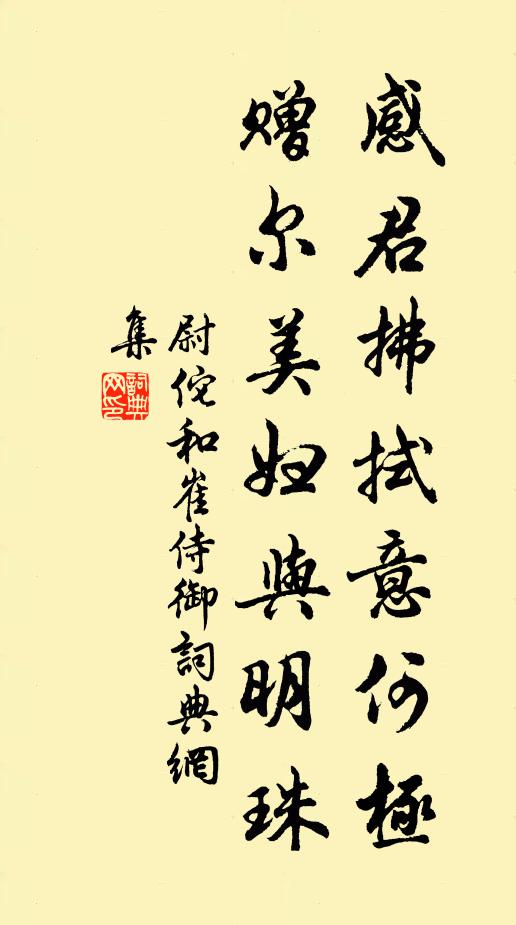 感君拂拭意何極
赠尔美妇與明珠
尉佗和崔侍御詞典網
集
詞典
网印